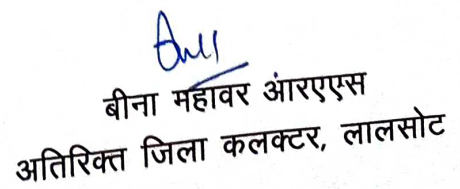 बीना महावर आंरएएस
अतिरिक्त जिला कलक्टर, लालसोट